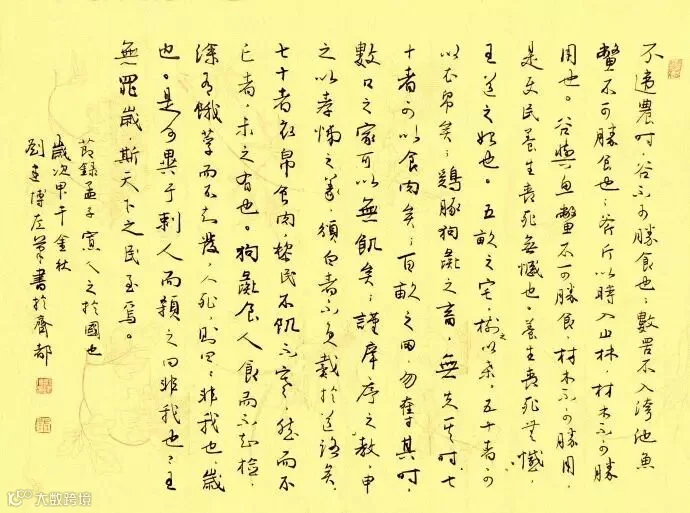 不违農时，谷不可勝食也；數罟不入洿池魚
鳖不可勝食也；斧斤以時入山林，材木不可勝
用也。谷與魚鳖不可勝食，材木不可勝用，
是使民養生喪死無憾也。養生喪死無憾，
王道之始也。五畝之宅，樹之以桑，五十者可
以衣帛矣；鷄豚狗彘之畜，無失其时，七
十者可以食肉矣；百畝之田，勿奪其时，
數口之家可以無飢矣；謹庠序之教，申
之以孝悌之義，頒白者不負戴於道路矣。
七十者衣帛食肉，黎民不飢不寒，然而不
王者，未之有也。狗彘食人食而不知檢，
涂有餓莩而不知發，人死，則曰：非我也，歲
也。是何異于刺人而殺之曰非我也；王
無罪歲，斯天下之民至焉。
節録孟子寡人之於國也
歲次甲午金秋
劉建博左筆書於齊都
大数跨境